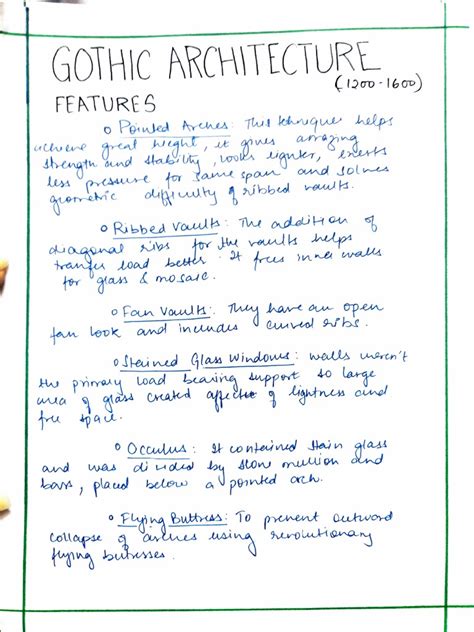 GOTHIC ARCHITECTURE
(1200-1600)
FEATURES
o Pointed Arches: This technique helps
achieve great height, it gives amazing
strength and stability, looks lighter, exerts
less pressure for same span and solves
geometric difficulty of ribbed vaults.
o Ribbed Vaults: The addition of
diagonal ribs for the vaults helps
transfer load better. It frees inner walls
for glass & mosaic.
o Fan Vaults: They have an open
fan look and includes curved ribs.
o Stained Glass Windows: walls weren't
the primary load bearing support so large
area of glass created effect of lightness and
free space.
o Occulus: It contained stain glass
and was divided by stone mullion and
bars, placed below a pointed arch.
o Flying Buttress: To prevent outword
collapse of arches using revolutionary
flying butresses.